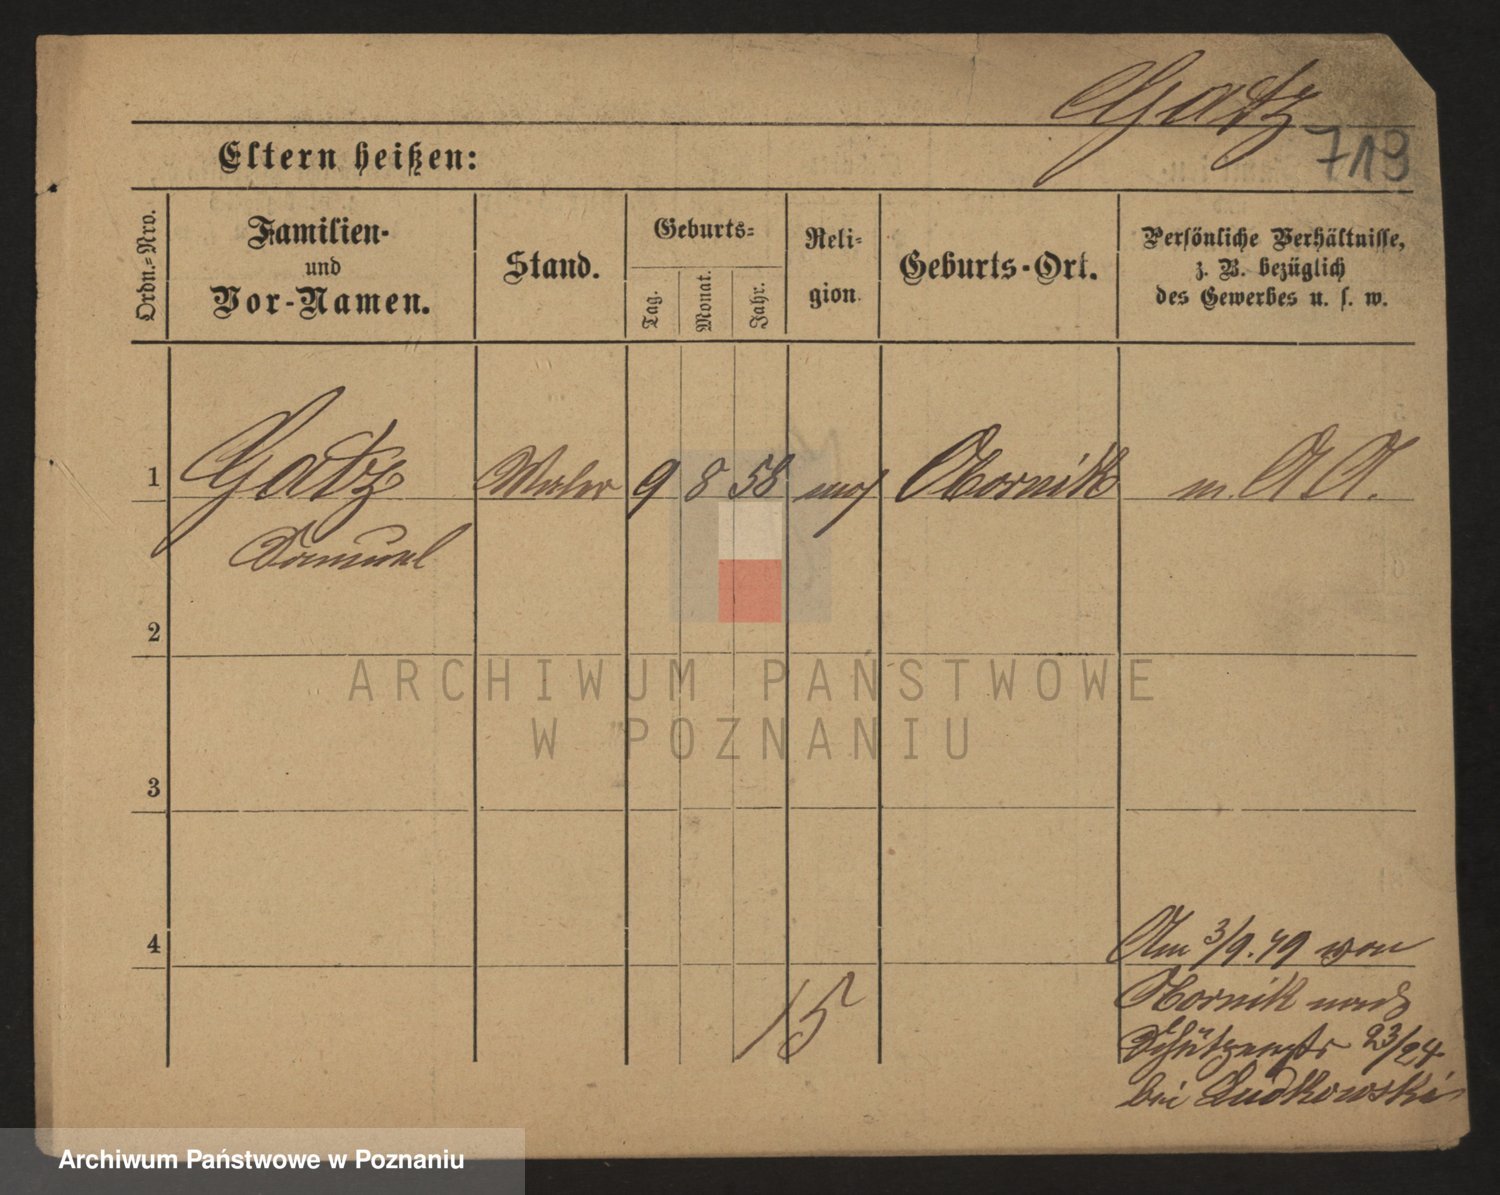 Gatz
719
Eltern heißen:
Ordn.-Nro.
Familien-
und
Vor-Namen.
Stand.
Geburts-
Tag.
Monat.
Jahr.
Reli-
gion.
Geburts-Ort.
Persönliche Verhältnisse,
z. B. bezüglich
des Gewerbes u. s. w.
1 Gatz Maler 9 8 58 mos Obornik m. A A.
Samuel
2
3
4
Am 3/9. 79 von
Obornik nach
Schützenstr 23/24
bei Ludkowski
15
ARCHIWUM PAŃSTWOWE
W POZNANIU
Archiwum Państwowe w Poznaniu